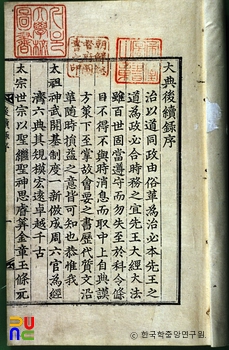 大典後續錄序
治以道同政由俗革爲治必本先王之
道爲政必合時務之宜先王大經大法
雖百世固當遵守而勿失至於科令條
目不得不與時消息而取中上自典謨
方策下至掌故會要之書歷代質文沿
革隨時損益之意皆可知也恭惟我
太祖神武開基制度一新倣成周六官爲經
濟六典其規模宏遠卓越千古
太宗世宗以聖繼聖神思睿算金章玉條元
ⓒ 한국학중앙연구원.